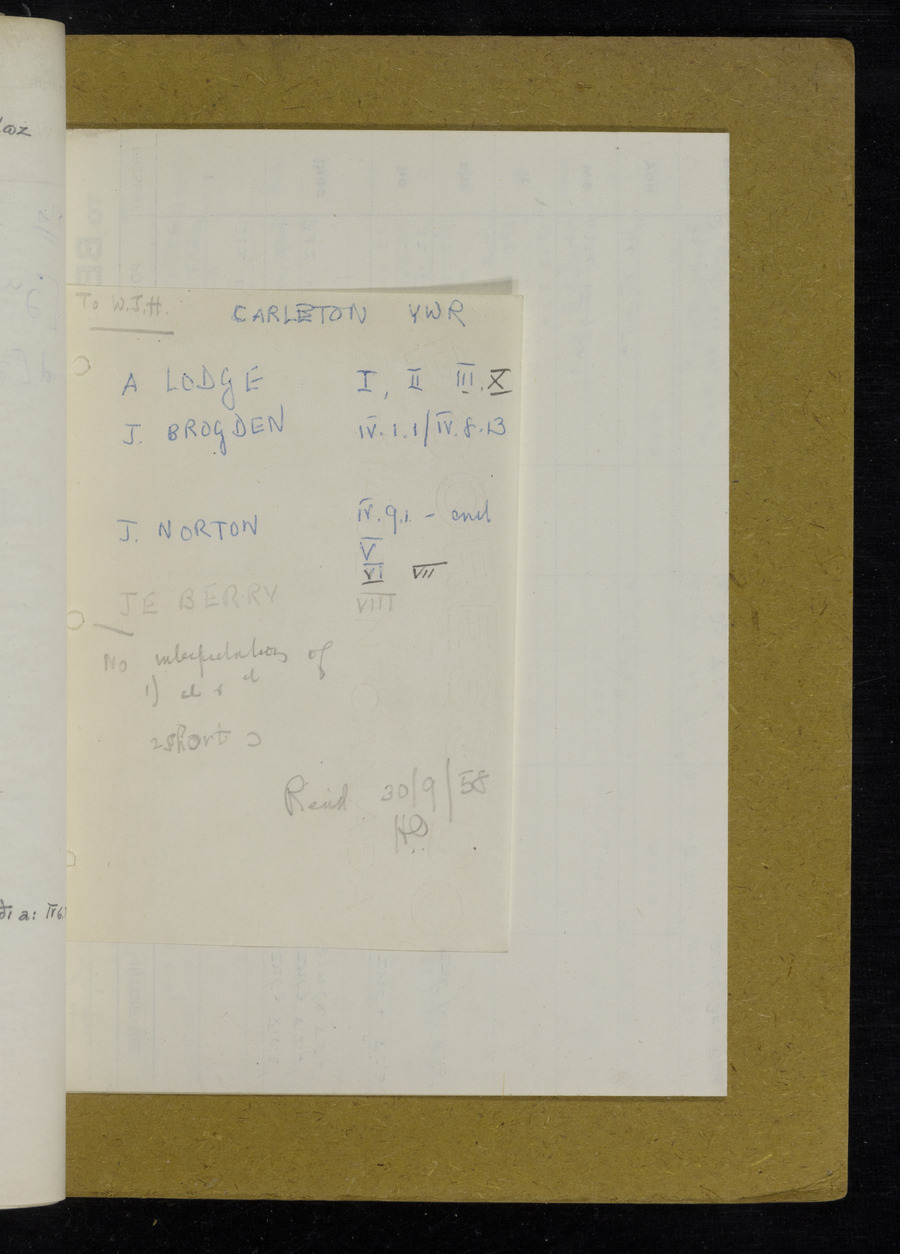 To W.J.H.
CARLETON YWR
A LODGE I, II III. X
J. BROGDEN IV.1.1/IV.8.13
J. NORTON IV.9.1. - end
V
VI VII
JE BERRY VIII
No of
1) d & d
short ɔ
30/9/58
a: